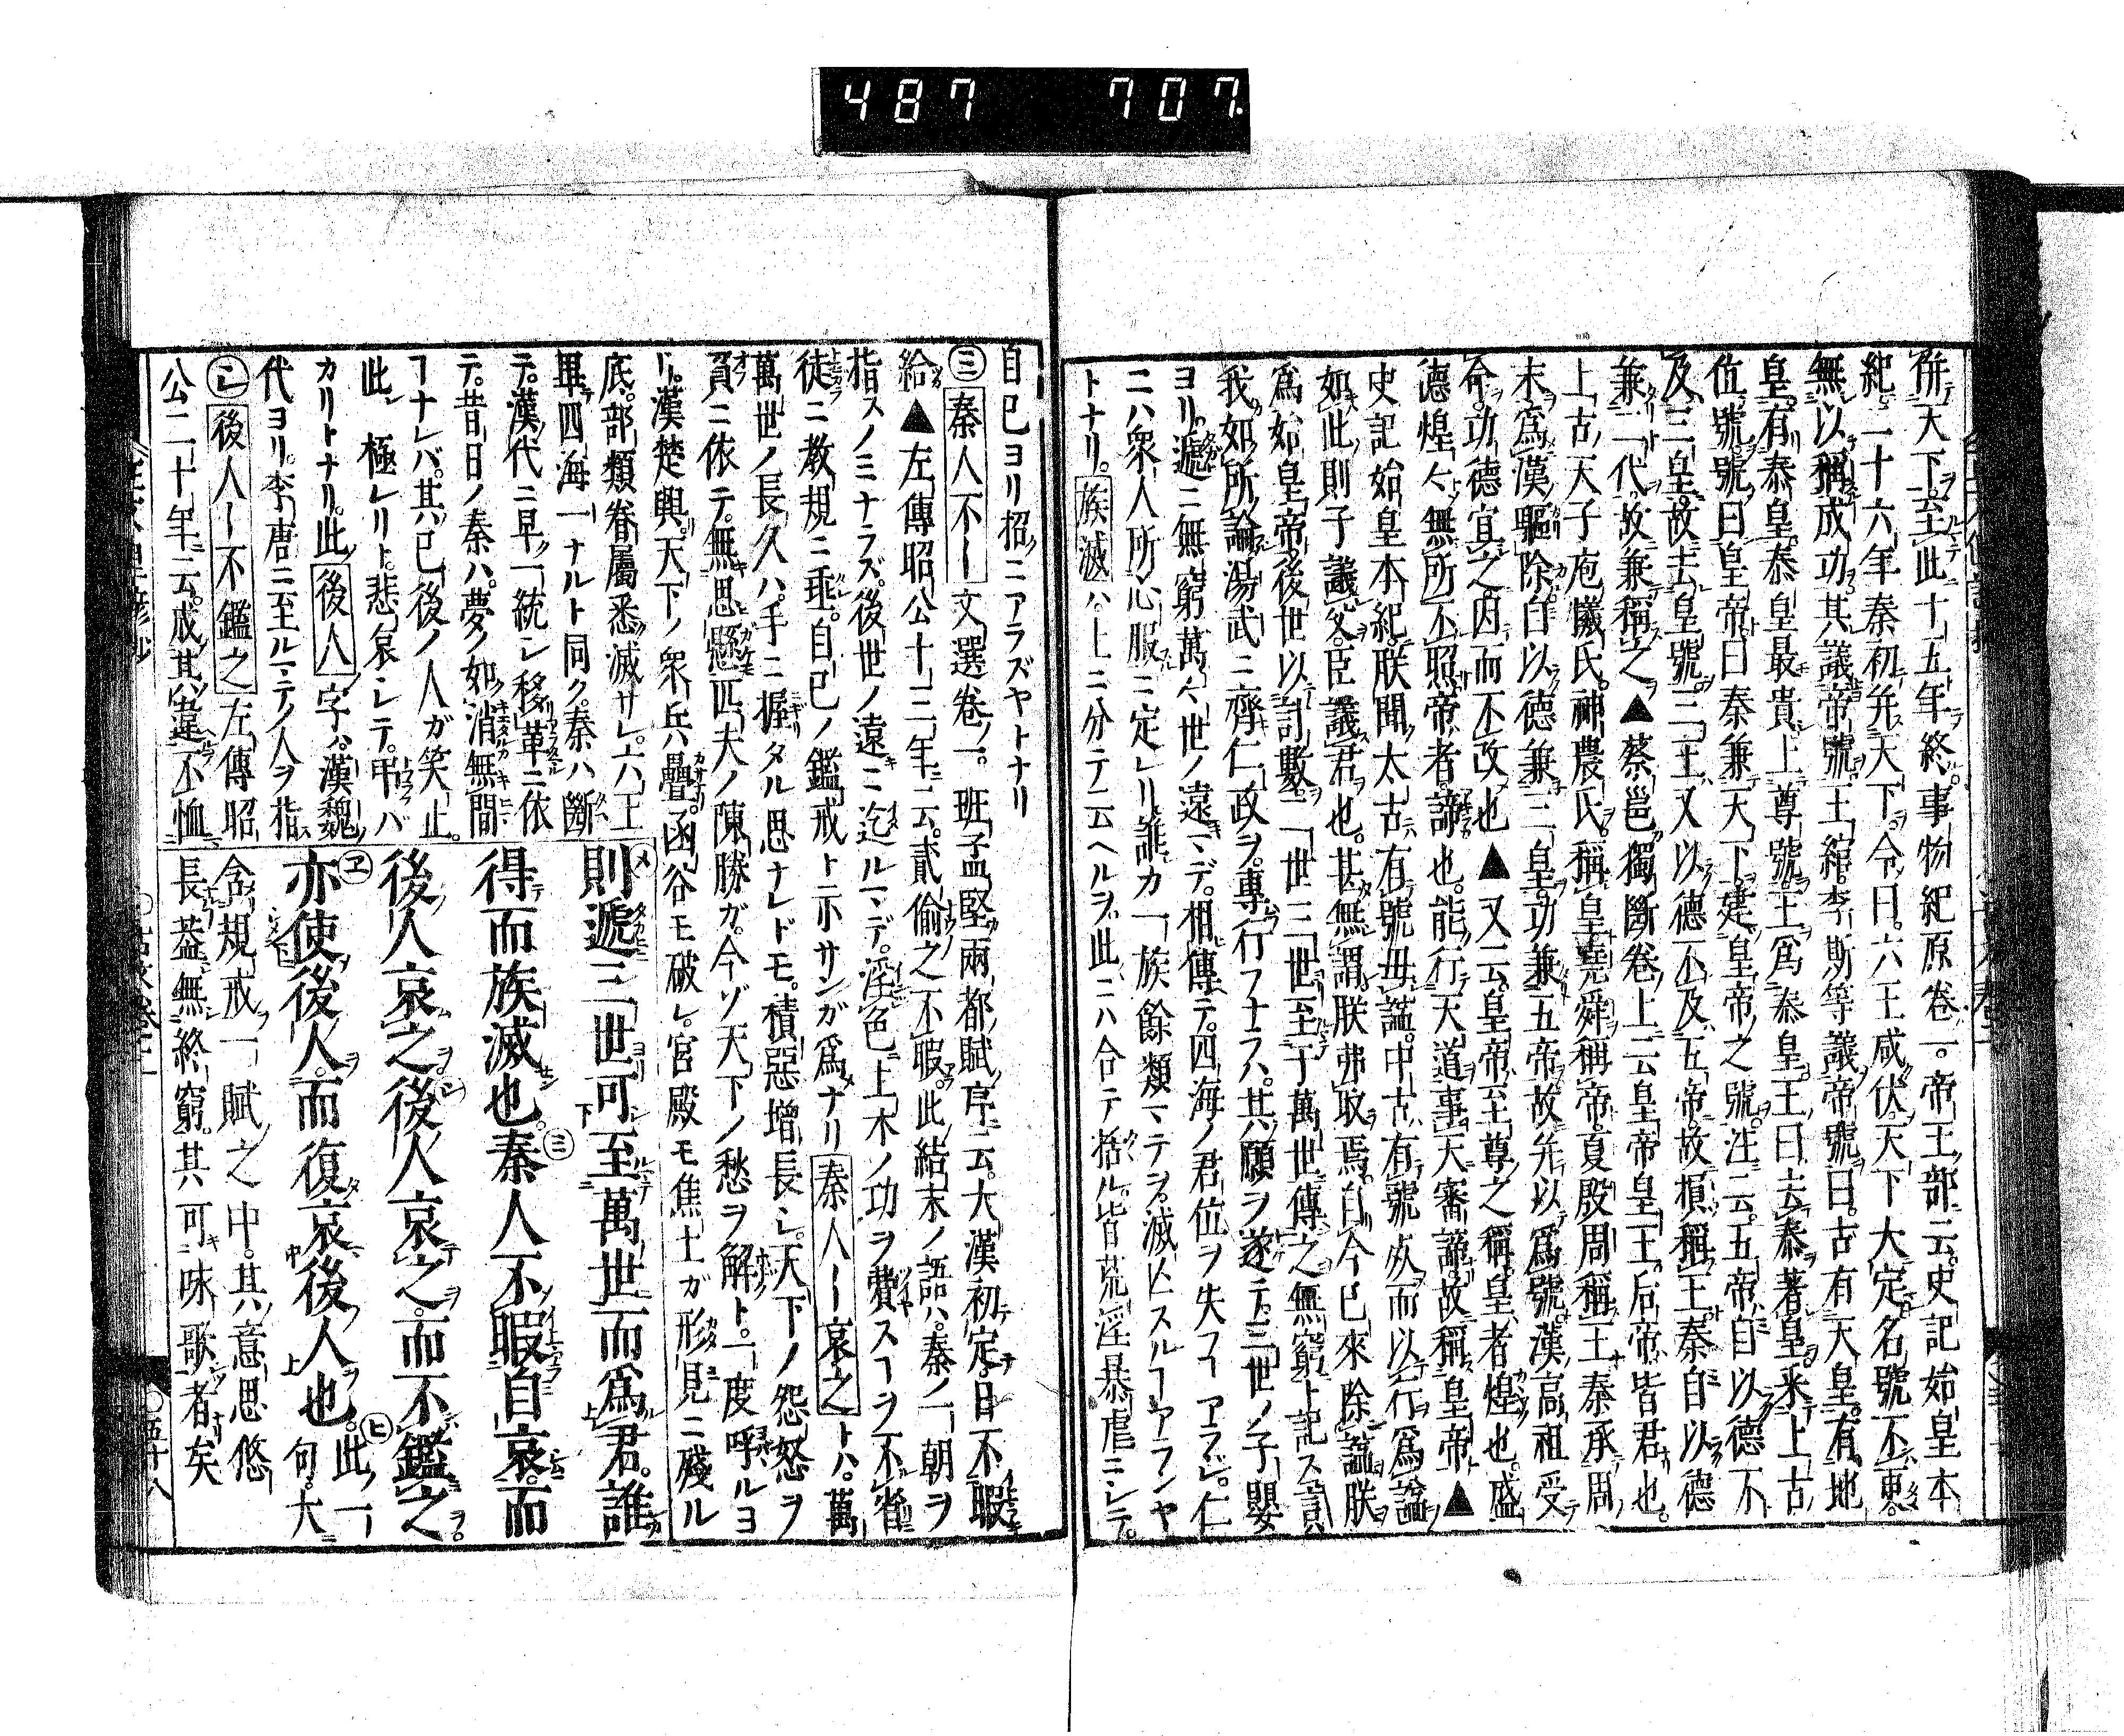 487 707.
併天下。至此十五年終。事物紀原卷一。帝王部云。史記始皇本
紀。二十六年秦初并天下。令曰。六王咸伏。天下大定。名號不更。
無以稱成功。其議帝號。王綰。李斯等議帝號曰。古有天皇。有地
皇。有泰皇。泰皇最貴。上尊號。王爲泰皇。王曰去泰著皇采上古
位號。號曰皇帝。曰秦兼天下。建皇帝之號。注云。五帝自以德不
及三皇。故去皇號。三王又以德不及五帝。故損稱王。秦自以德
兼二代。故兼稱之▲蔡邕獨斷卷上云皇帝皇王后帝皆君也。
上古天子庖犧氏。神農氏。稱皇。堯舜稱帝。夏殷周稱王秦承周
末爲漢驅除。自以德兼三皇。功兼五帝故并以爲號。漢高祖受
命。功德宜之。因而不改也▲又云。皇帝至尊之稱。皇者煌也。盛
德煌々無所不照。帝者諦也。能行天道事天審諦。故稱皇帝▲
史記始皇本紀。朕聞太古有號毋謚。中古有號死而以行爲謚
如此則子議父。臣議君也。甚無謂朕弗取焉。自今已來除謚朕
爲始皇帝。後世以計數。二世三世至于萬世傳之無窮ト記ス
我如所論湯武ニ齊キ仁政ヲ。專行フナラハ。其願ヲ遂テ。三世ノ子嬰
ヨリ。遞ニ無窮萬々世ノ遠マデ。相傳テ。四海ノ君位ヲ失フ アラジ。仁
ニハ衆人所心服ニ定レリ誰カ 族餘類マテヲ。滅ヒスル アランヤ
トナリ。族滅ハ。上ニ分テ云ヘルヲ。此ニハ合テ括ル。皆荒淫暴虐ニシテ。
自已ヨリ招ニアラズヤトナリ
㋯秦人不ー文選卷一。班孟堅兩都賦序云。大漢初定。日不暇
給▲左傳昭公十三年云。貳偷之不暇。此結末ノ語ハ。秦ノ一朝ヲ
指スノミナラズ。後世ノ遠ニ迄ルマデ。淫色土木ノ功ヲ費ス ヲ不省
徒ニ教規ニ 。自已ノ鑑戒ト示サンガ爲ナリ秦人ー哀之トハ。萬
萬世ノ長久ハ。手ニ握タル思ナレドモ。積惡增長シ。天下ノ怨怒ヲ
負ニ依テ。無思懸匹夫ノ陳勝ガ。今ゾ天下ノ愁ヲ解ト。一度呼ルヨ
ト。漢楚興。天下ノ衆兵疊。函谷モ破レ。宮殿モ焦土ガ形見ニ殘ル
底。部類眷屬悉滅サレ。六王
畢四海一ナルト同ク。秦ハ斷
テ。漢代ニ早一統シ移革ニ依
テ。昔日ノ秦ハ。夢ノ如消無間
 ナレバ。其已後ノ人ガ笑止。
此 極レリト。悲哀シテ。弔バ
カリトナリ。此後人字ハ。漢魏
代ヨリ。李唐ニ至ルマテノ人ヲ指
㋛後人ー不鑑之左傳昭
公二十年云。成其違不恤
㋱則遞三世可至萬世而爲君。誰
得而族滅也㋯秦人不暇自哀。而
後人哀之㋛後人哀之。而不鑑之。
㋓亦使後人而復哀後人也。㋪此一
句。大
含規戒一賦之中。其意思悠
長益無終窮。其可味歌者矣
五十八